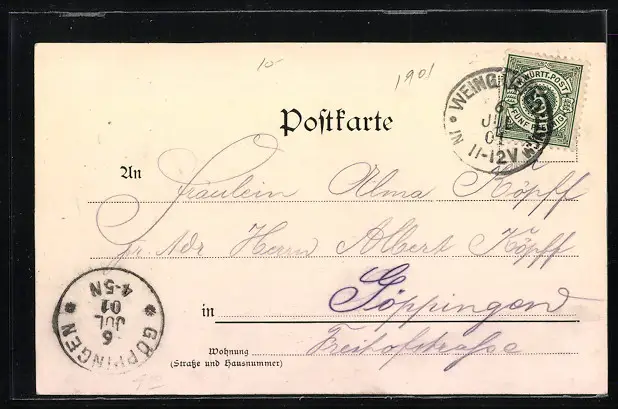 10
1901
Postkarte
K. WÜRTT. POST
FÜNF PFENNIG
WEING
6
JUL
01
11-12V
IN
An Fräulein Alma Köpff
pr. Adr Herrn Albert Köpff
in Göppingen
Wohnung Freihofstrasse
(Straße und Hausnummer)
GÖPPINGEN
6
JUL
01
4-5N